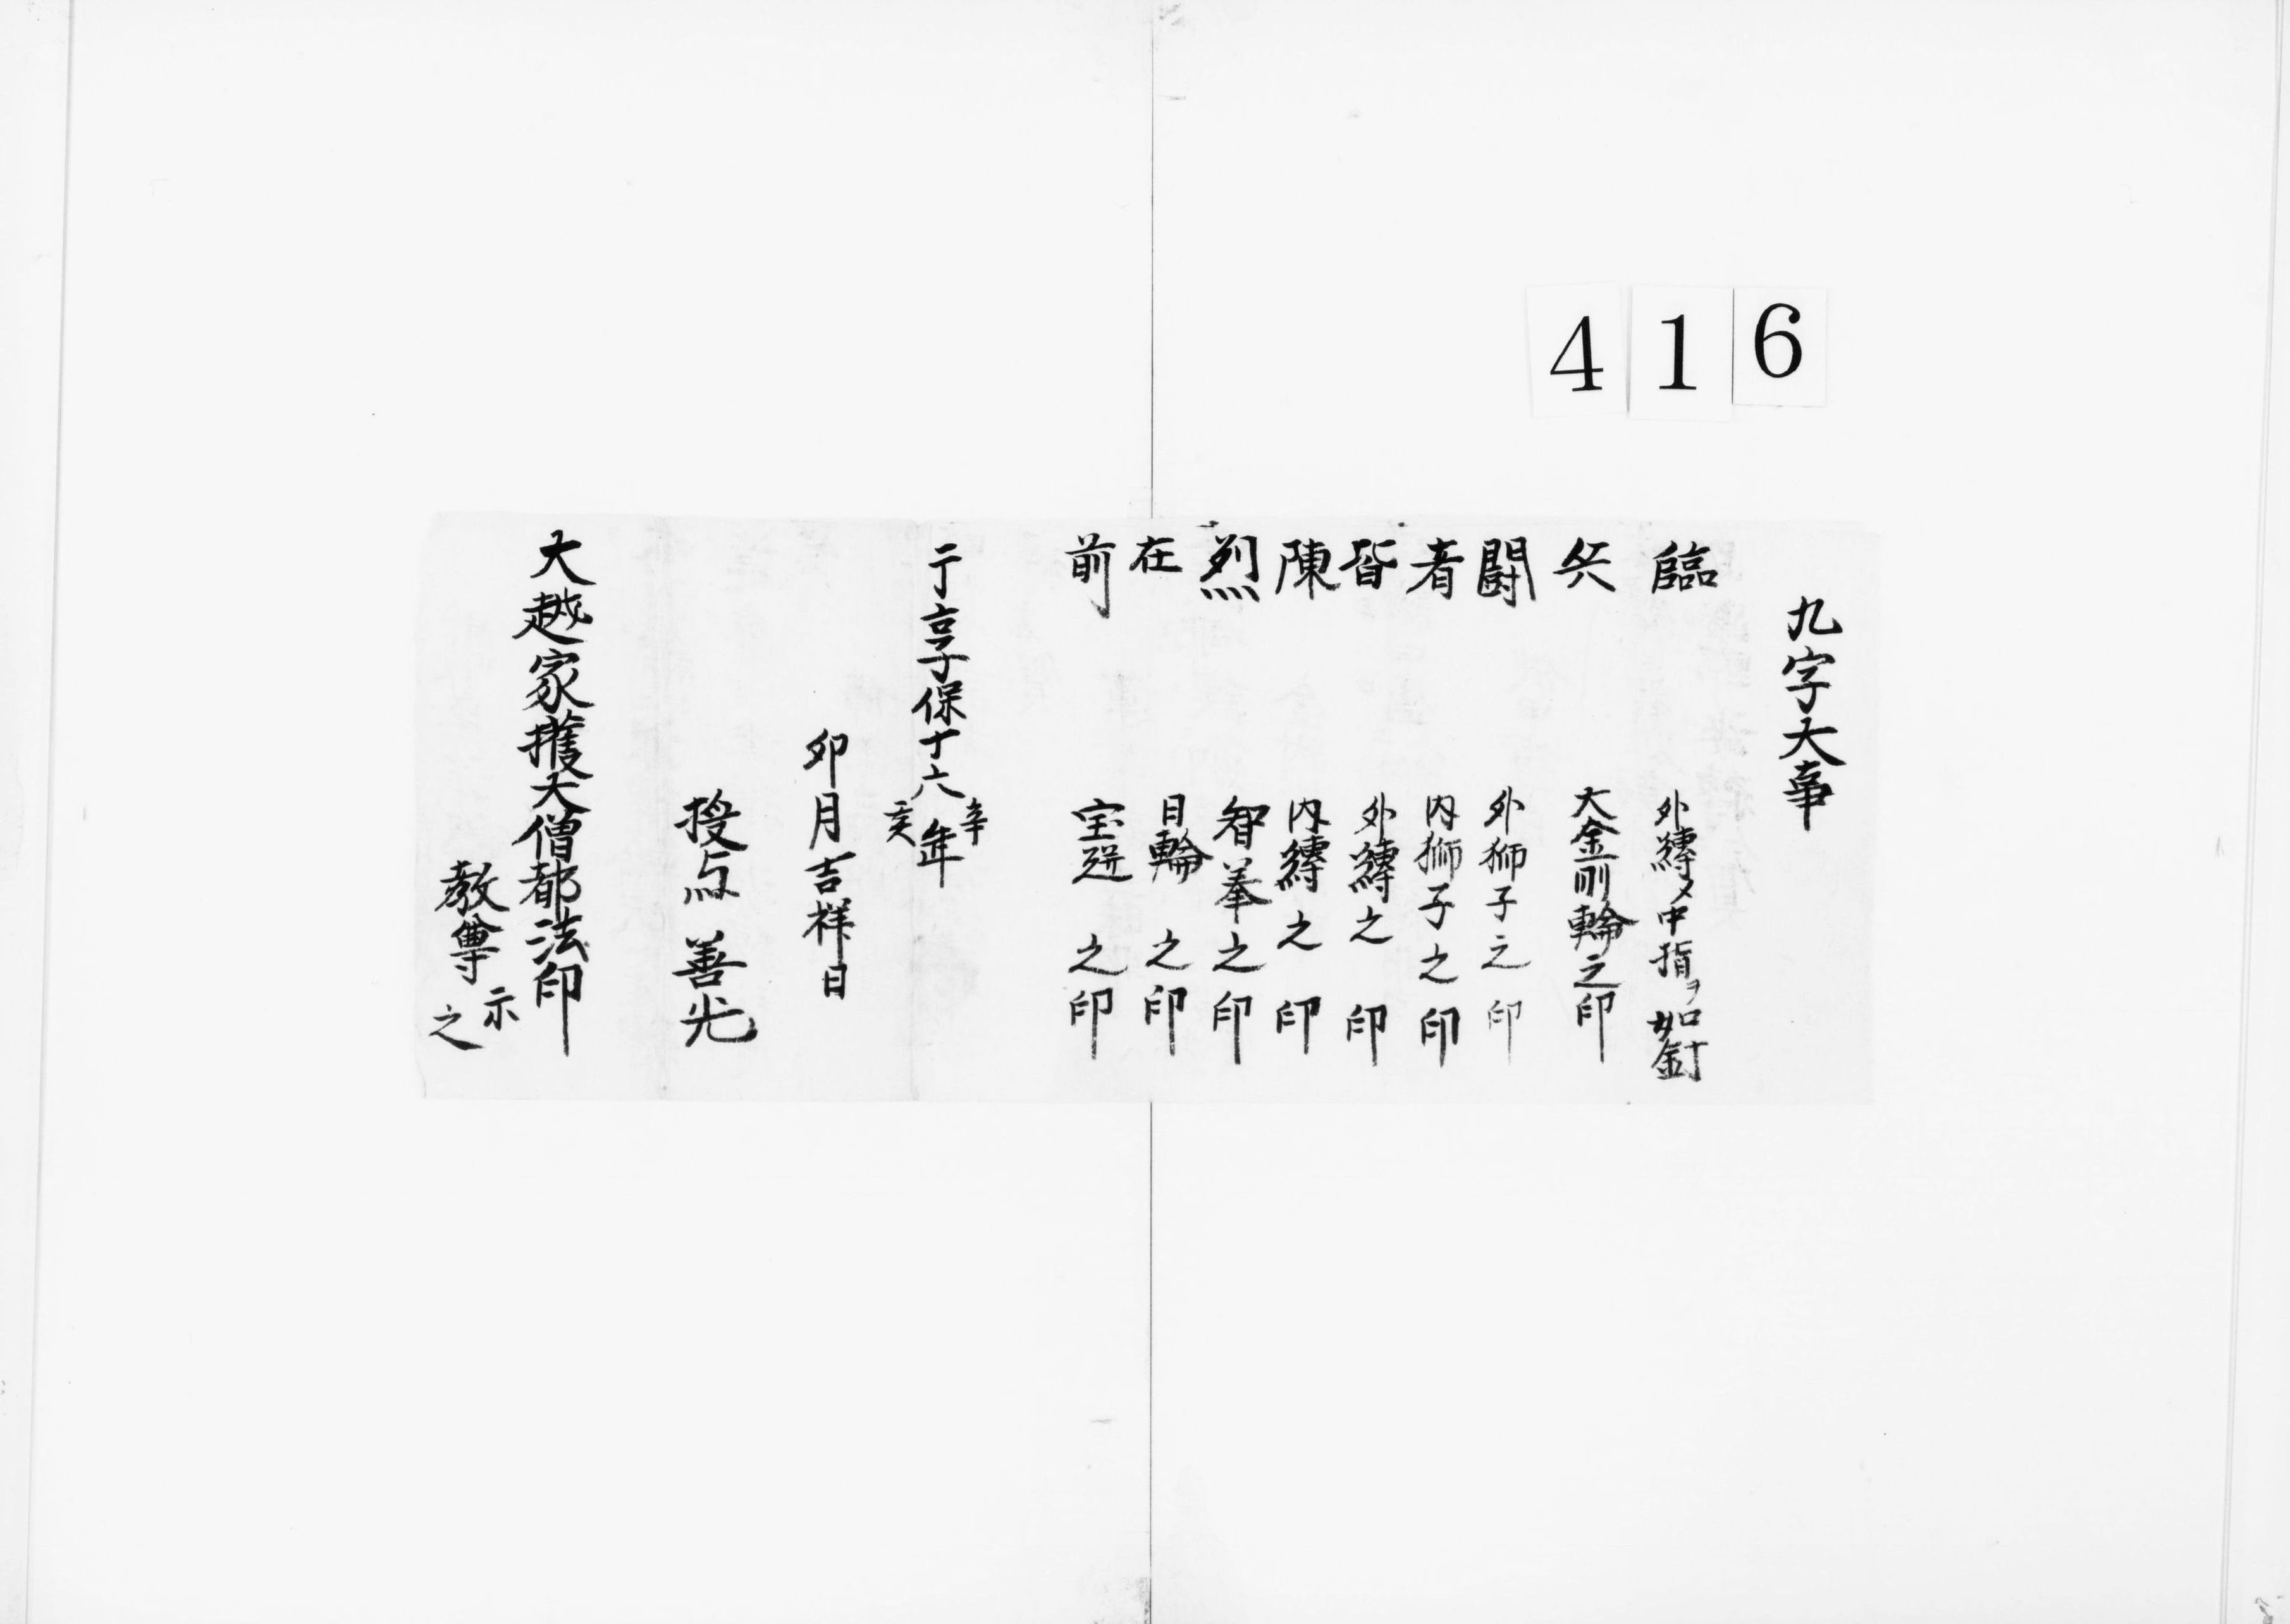 416
九字大事
臨 外縛〆中指ヲ如釘
兵 大金剛輪之印
闘 外獅子之印
者 内獅子之印
皆 外縛之印
陳 内縛之印
烈 智拳之印
在 日輪之印
前 宝瓶之印
于享保十六辛亥年
卯月吉祥日
授与 善光
大越家擭大僧都法印
教尊示之